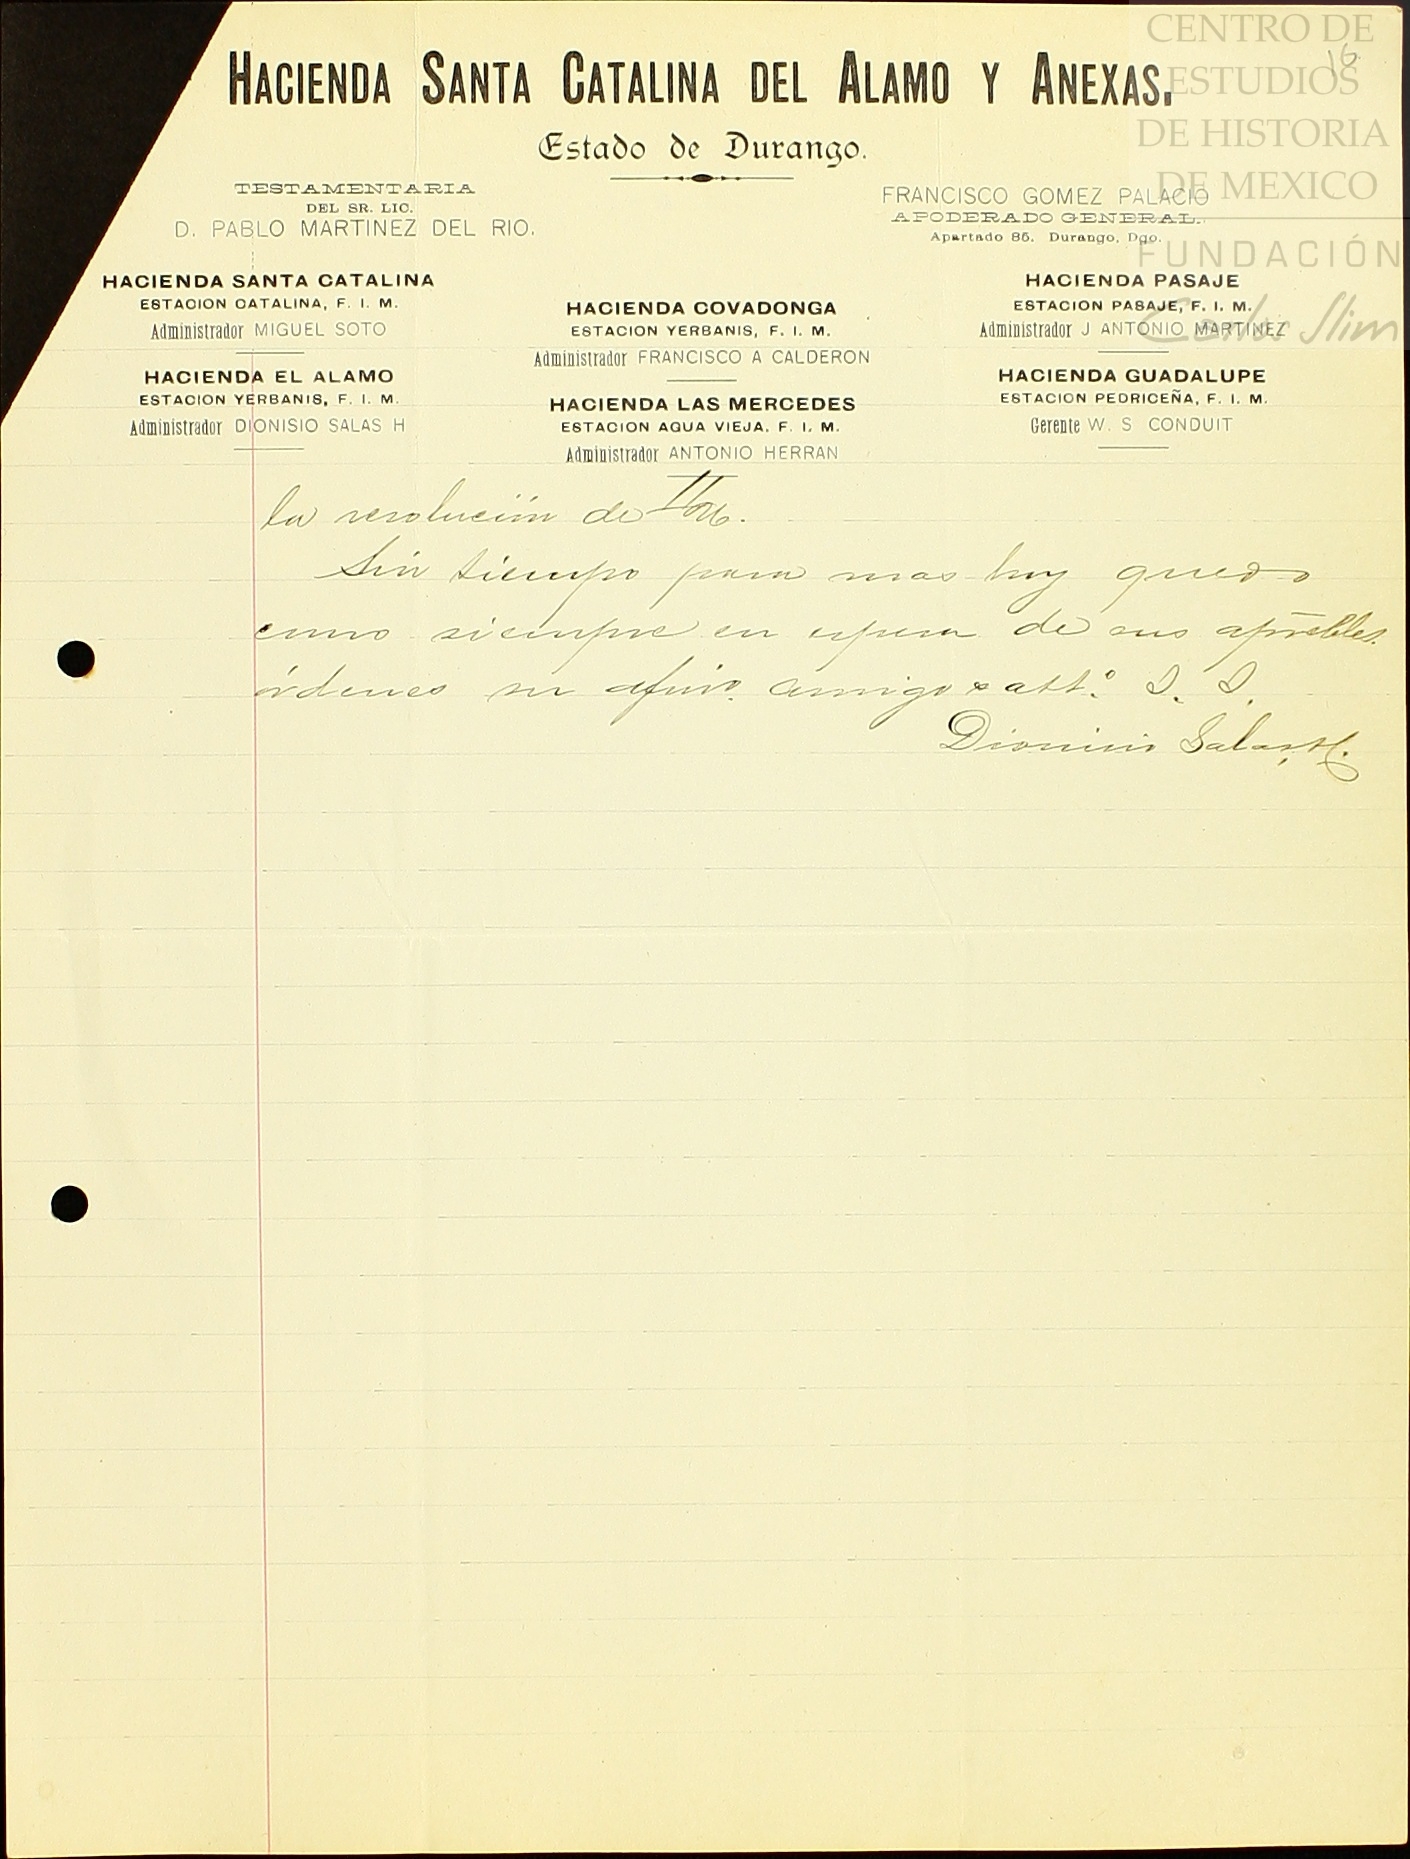 CENTRO DE
ESTUDIOS
DE HISTORIA
DE MEXICO
FUNDACIÓN
Carlos Slim
16
HACIENDA SANTA CATALINA DEL ALAMO Y ANEXAS.
Estado de Durango.
TESTAMENTARIA
DEL SR. LIC.
D. PABLO MARTINEZ DEL RIO.
FRANCISCO GOMEZ PALACIO
APODERADO GENERAL.
Apartado 85. Durango, Dgo.
HACIENDA SANTA CATALINA
ESTACION CATALINA, F. I. M.
Administrador MIGUEL SOTO
HACIENDA EL ALAMO
ESTACION YERBANIS, F. I. M.
Administrador DIONISIO SALAS H
HACIENDA COVADONGA
ESTACION YERBANIS, F. I. M.
Administrador FRANCISCO A CALDERON
HACIENDA LAS MERCEDES
ESTACION AGUA VIEJA, F. I. M.
Administrador ANTONIO HERRAN
HACIENDA PASAJE
ESTACION PASAJE, F. I. M.
Administrador J ANTONIO MARTINEZ
HACIENDA GUADALUPE
ESTACION PEDRICEÑA, F. I. M.
Gerente W. S CONDUIT
la resolución de
Sin tiempo para mas hoy quedo
como siempre en espera de sus aprebles.
órdenes su afmo. amigo y att.º S. S.
Dionisio Salas H.